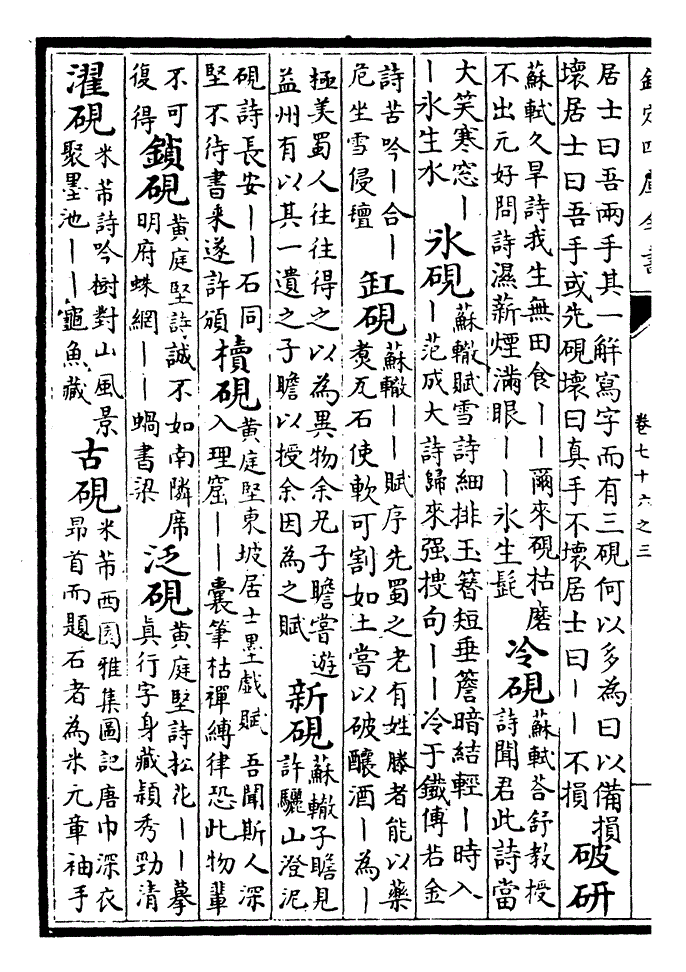 欽定四庫全書
卷七十六之三
居士曰吾兩手其一解寫字而有三硯何以多為曰以備損
壞居士曰吾手或先硯壞曰真手不壞居士曰丨丨不損
破研
蘇軾久旱詩我生無田食丨丨爾來硯枯磨
不出元好問詩濕薪煙滿眼丨丨氷生髭
冷硯
蘇軾荅舒教授
詩聞君此詩當
大笑寒窓丨
丨氷生水
氷硯
蘇轍賦雪詩細排玉簪短垂簷暗結輕丨時入
丨范成大詩歸來强捜句丨丨冷于鐵傅若金
詩苦吟丨合丨
危坐雪侵氊
缸硯
蘇轍丨丨賦序先蜀之老有姓滕者能以藥
煑瓦石使軟可割如土嘗以破釀酒丨為丨
極美蜀人往往得之以為異物余兄子瞻嘗遊
益州有以其一遺之子瞻以授余因為之賦
新硯
蘇轍子瞻見
許驪山澄泥
硯詩長安丨丨石同
堅不待書來遂許頒
櫝硯
黄庭堅東坡居士墨戲賦 吾聞斯人深
入理窟丨丨囊筆枯禪縛律恐此物輩
不可
復得
鎖硯
黄庭堅詩誠不如南隣席
明府蛛網丨丨蝸書梁
泛硯
黄庭堅詩松花丨丨摹
真行字身藏潁秀勁清
濯硯
米芾詩吟樹對山風景
聚墨池丨丨龜魚藏
古硯
米芾西園雅集圖記唐巾深衣
昂首而題石者為米元章袖手